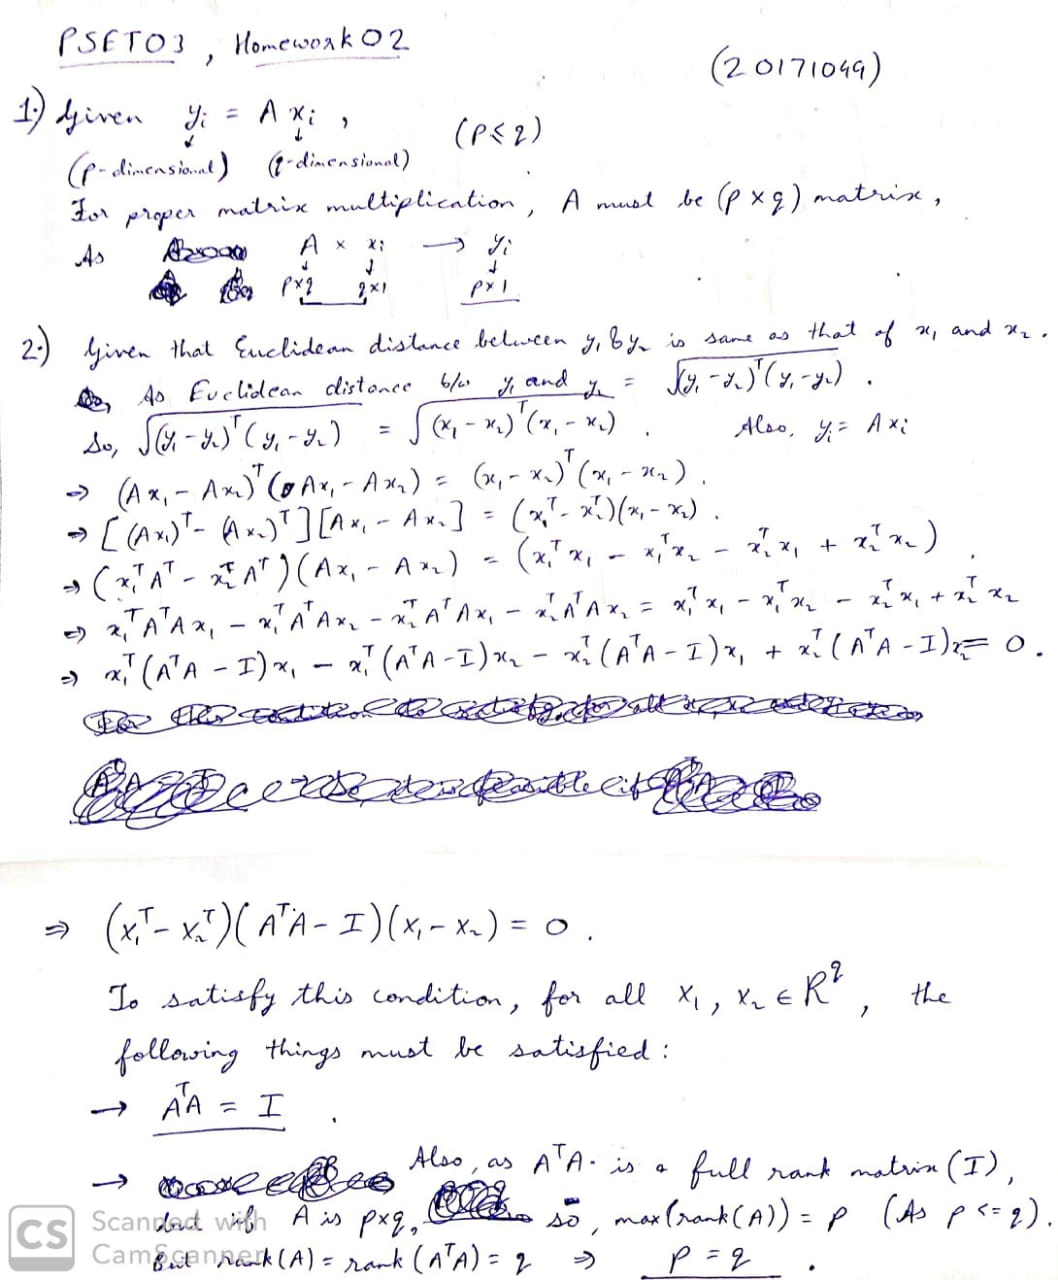 PSET03, Homework 02
(20171049)
1) Given yᵢ = A xᵢ , (p ≤ q)
(p-dimensional) (q-dimensional)
For proper matrix multiplication, A must be (p x q) matrix,
As A × xᵢ → yᵢ
p×q q×1 p×1
2) Given that Euclidean distance between y₁ & y₂ is same as that of x₁ and x₂.
As Euclidean distance b/w y₁ and y₂ = √(y₁ - y₂)ᵀ(y₁ - y₂) .
So, √(y₁ - y₂)ᵀ(y₁ - y₂) = √(x₁ - x₂)ᵀ(x₁ - x₂) . Also, yᵢ = Axᵢ
⇒ (Ax₁ - Ax₂)ᵀ(Ax₁ - Ax₂) = (x₁ - x₂)ᵀ(x₁ - x₂) .
⇒ [(Ax₁)ᵀ - (Ax₂)ᵀ][Ax₁ - Ax₂] = (x₁ᵀ - x₂ᵀ)(x₁ - x₂) .
⇒ (x₁ᵀAᵀ - x₂ᵀAᵀ)(Ax₁ - Ax₂) = (x₁ᵀx₁ - x₁ᵀx₂ - x₂ᵀx₁ + x₂ᵀx₂) .
⇒ x₁ᵀAᵀAx₁ - x₁ᵀAᵀAx₂ - x₂ᵀAᵀAx₁ - x₂ᵀAᵀAx₂ = x₁ᵀx₁ - x₁ᵀx₂ - x₂ᵀx₁ + x₂ᵀx₂
⇒ x₁ᵀ(AᵀA - I)x₁ - x₁ᵀ(AᵀA - I)x₂ - x₂ᵀ(AᵀA - I)x₁ + x₂ᵀ(AᵀA - I)x₂ = 0.
⇒ (x₁ᵀ - x₂ᵀ)(AᵀA - I)(x₁ - x₂) = 0 .
To satisfy this condition, for all x₁, x₂ ∈ R^q , the
following things must be satisfied :
→ AᵀA = I .
→ Also, as AᵀA is a full rank matrix (I),
and if A is p×q, so, max(rank(A)) = p (As p <= q).
But rank(A) = rank(AᵀA) = q ⇒ p = q .
CS Scanned with
CamScanner